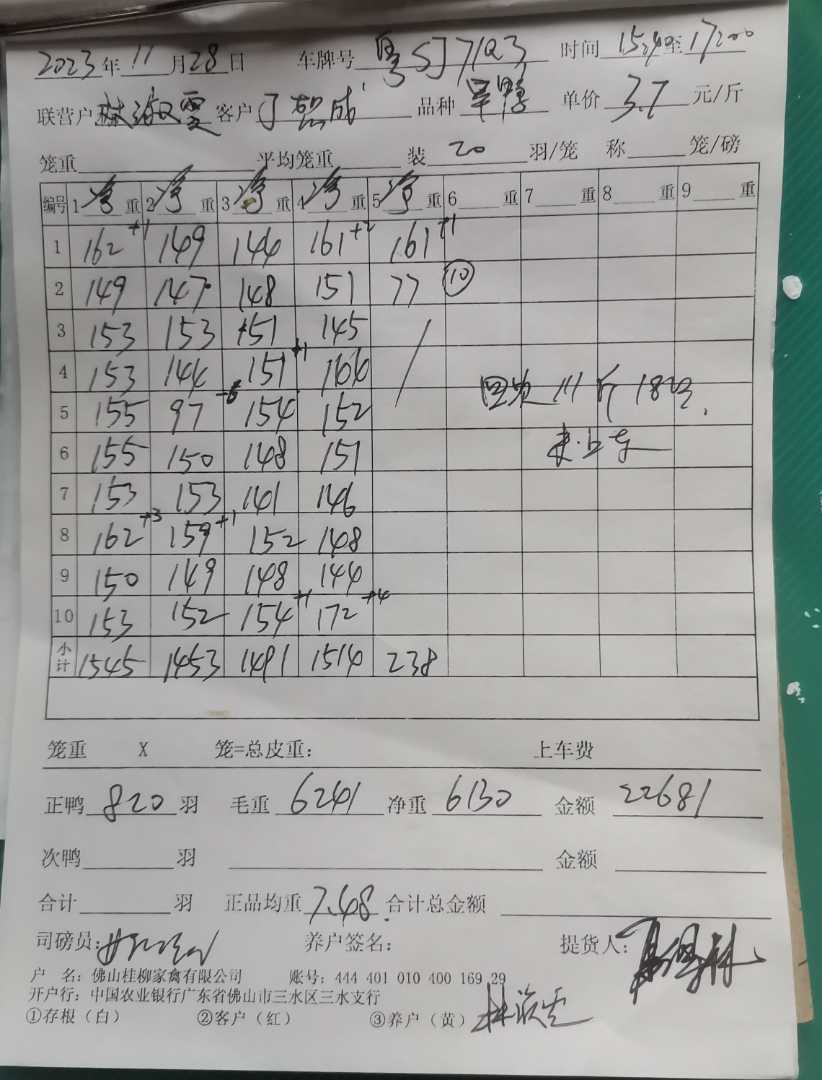 2023年11月28日 车牌号 粤SJ7123 时间 15:40至17:00
联营户 客户 丁智成 品种 旱鸭 单价 3.7 元/斤
笼重 平均笼重 装 20 羽/笼 称 笼/磅
编号 1 净 重 2 净 重 3 净 重 4 净 重 5 净 重 6 重 7 重 8 重 9 重
1 162+1 149 144 161+2 161+1
2 149 147 148 151 77 ⑩
3 153 153 151 145
4 153 144 151+1 166
5 155 97 154 152
6 155 150 148 151
7 153 153 141 146
8 162+3 159+1 152 148
9 150 149 148 144
10 153 152 154+1 172+4
小计 1545 1453 1491 1514 238
111斤 18只
未上车
笼重 X 笼=总皮重: 上车费
正鸭 820 羽 毛重 6241 净重 6130 金额 22681
次鸭 羽 金额
合计 羽 正品均重 7.48 合计总金额
司磅员: 养户签名: 提货人:
户 名: 佛山桂柳家禽有限公司 账号: 444 401 010 400 169 29
开户行: 中国农业银行广东省佛山市三水区三水支行
①存根（白） ②客户（红） ③养户（黄）